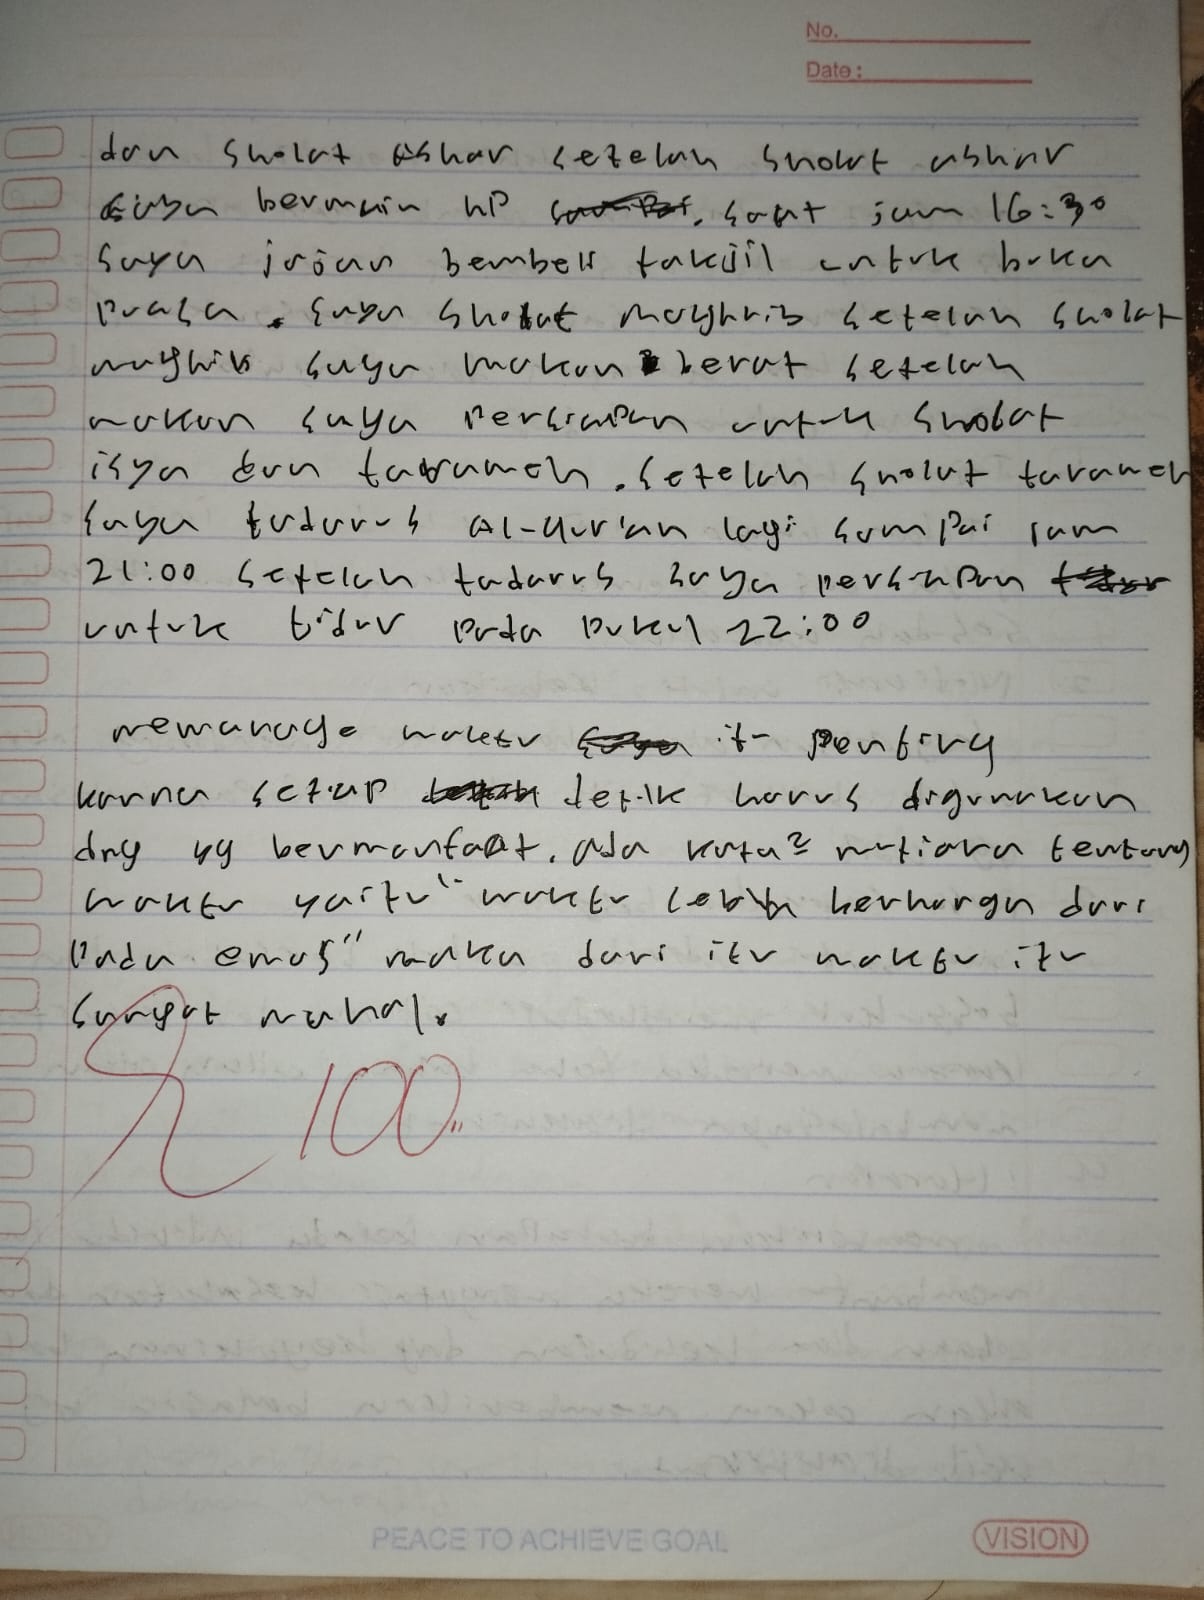 No.
Date:
dan sholat Ashar setelah sholat ashar
saya bermain HP saat jam 16:30
saya jajan bembeli takjil untuk buka
Puasa. saya sholat maghrib setelah sholat
maghrib saya makan berat setelah
makan saya Persiapan untuk sholat
isya dan taraweh. setelah sholat taraweh
saya tadarus Al-Qur'an lagi sampai jam
21:00 setelah tadarus saya persiapan
untuk tidur pada pukul 22:00
memanage waktu itu penting
karna setiap detik harus digunakan
dng yg bermanfaat. Ada kata² mutiara tentang
waktu yaitu "waktu lebih berharga dari
Pada emas" maka dari itu waktu itu
sangat mahal.
100
PEACE TO ACHIEVE GOAL
VISION